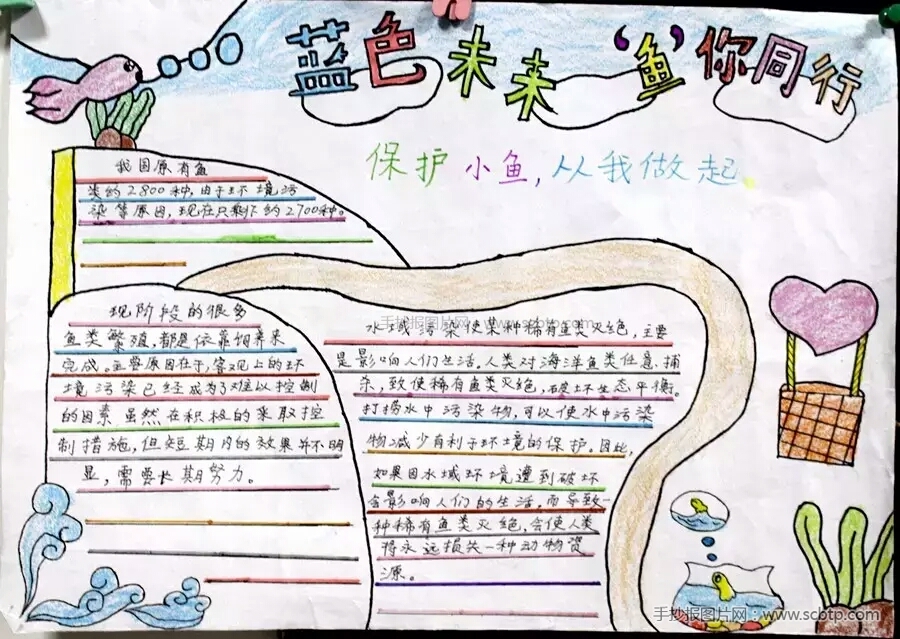 蓝色未来‘鱼’你同行
保护小鱼，从我做起
我国原有鱼
类约2800种，由于环境污
染等原因，现在只剩下约2700种。
现阶段的很多
鱼类繁殖，都是依靠饲养来
完成。主要原因在于，客观上的环
境污染已经成为了难以控制
的因素虽然在积极的采取控
制措施，但短期内的效果并不明
显，需要长期努力。
手抄报图片网：www.scbtp.com
水域污染使某种稀有鱼类灭绝，主要
是影响人们生活。人类对海洋鱼类任意捕
杀，致使稀有鱼类灭绝，破坏生态平衡。
打捞水中污染物，可以使水中污染
物减少有利于环境的保护。因此，
如果因水域环境遭到破坏
会影响人们的生活。而导致一
种稀有鱼类灭绝，会使人类
将永远损失一种动物资
源。
手抄报图片网：www.scbtp.com